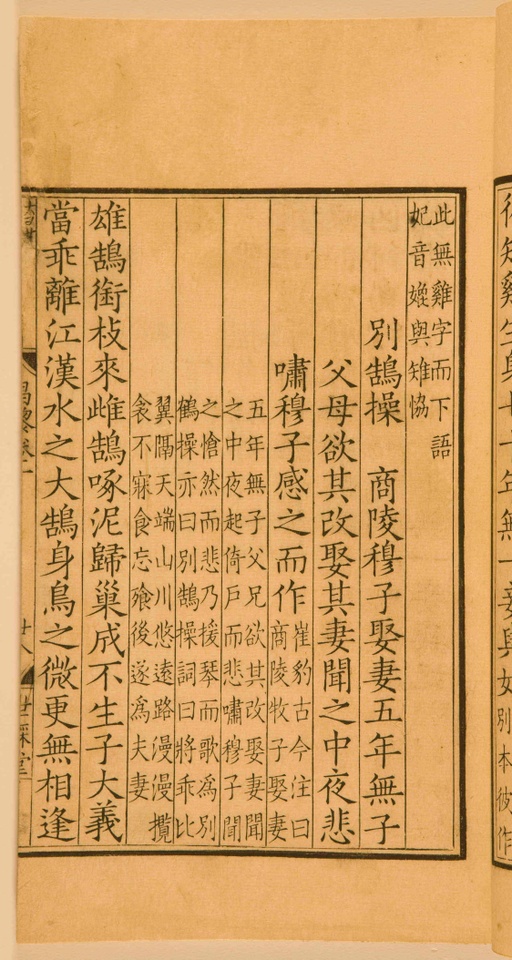 此無雞字而下語
妃音㜏與雉恊
別鵠操　商陵穆子娶妻五年無子
父母欲其改娶其妻聞之中夜悲
嘯穆子感之而作
崔豹古今注曰
商陵牧子娶妻
五年無子父兄欲其改娶妻聞
之中夜起倚戶而悲嘯穆子聞
之愴然而悲乃援琴而歌爲別
鶴操亦曰別鵠操詞曰將乖比
翼隔天端山川悠遠路漫漫攬
衾不寐食忘飱後遂爲夫妻
雄鵠銜枝來雌鵠啄泥歸巢成不生子大義
當乖離江漢水之大鵠身鳥之微更無相逢
昌黎卷一
廿八
世綵堂